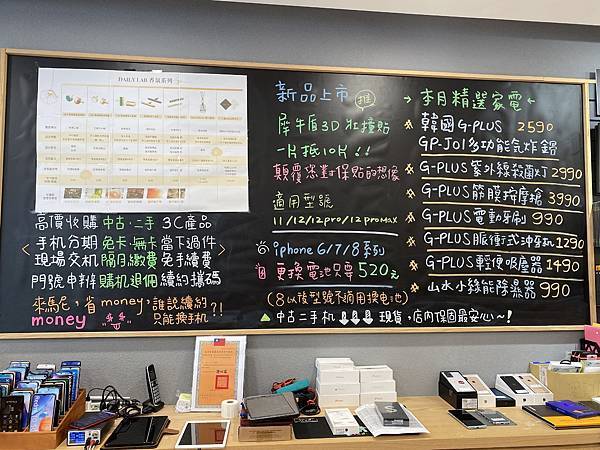 DAILY LAB 香氛系列
高價收購 中古.二手 3C產品
手機分期 免卡.無卡 當下過件
現場交机 隔月繳費 免手續費
門號申辦 購机退佣 續約攜碼
來馬尼，省money，誰說續約
只能換手机?!
money
新品上市
推
犀牛盾3D壯撞貼
一片抵10片!!
顛覆你對保貼的想像
適用型號
11/12/12pro/12promax
iphone 6/7/8系列
更換電池只要520元
(8以後型號不適用換電池)
中古二手机↓↓↓現貨，店內保固最安心~!
本月精選家電
韓國G-PLUS 2590
GP-J01多功能氣炸鍋
G-PLUS紫外線殺菌灯2990
G-PLUS筋膜按摩槍3990
G-PLUS電動牙刷990
G-PLUS脈衝式沖牙机1290
G-PLUS輕便吸塵器1490
山水小綠能除濕器990